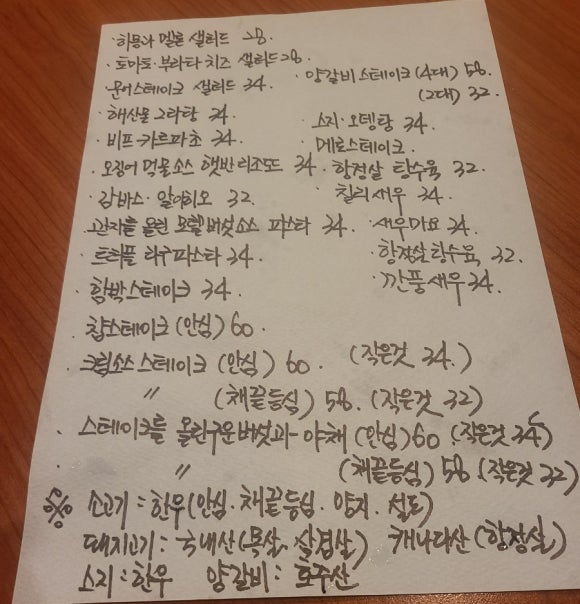 · 하몽과 멜론 샐러드 28.
· 토마토·부라타 치즈 샐러드 28.
· 문어스테이크 샐러드 34.
· 해산물 그라탕 34.
· 비프·카르파초 34.
· 오징어 먹물소스 햇반리조또 34.
· 감바스·알아히오 32.
· 관자를 올린 모렐버섯소스 파스타 34.
· 트러플 타쿠파스타 34.
· 함박스테이크 34.
· 찹스테이크 (안심) 60.
· 크림소스 스테이크 (안심) 60. (작은것 34.)
〃 (채끝등심) 58. (작은것 32)
· 스테이크를 올린구운버섯과 야채 (안심) 60 (작은것 34)
· 〃 (채끝등심) 58. (작은것 32)
· 양갈비 스테이크 (4대) 58.
(2대) 32.
· 스지·오뎅탕 34.
· 메로스테이크.
· 항정살 탕수육 32.
· 칠리새우 34.
· 새우마요 34.
· 항정살탕수육 32.
· 깐풍새우 34.
소고기 : 한우 (안심·채끝등심·양지·설도)
돼지고기 : 국내산 (목살·갈겹살) 캐나다산 (항정살)
스지 : 한우 양갈비 : 호주산